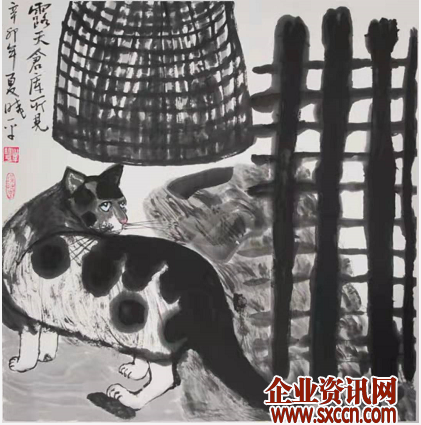 露天倉库所見
辛卯年夏晓平
企业资讯网
www.sxccn.com